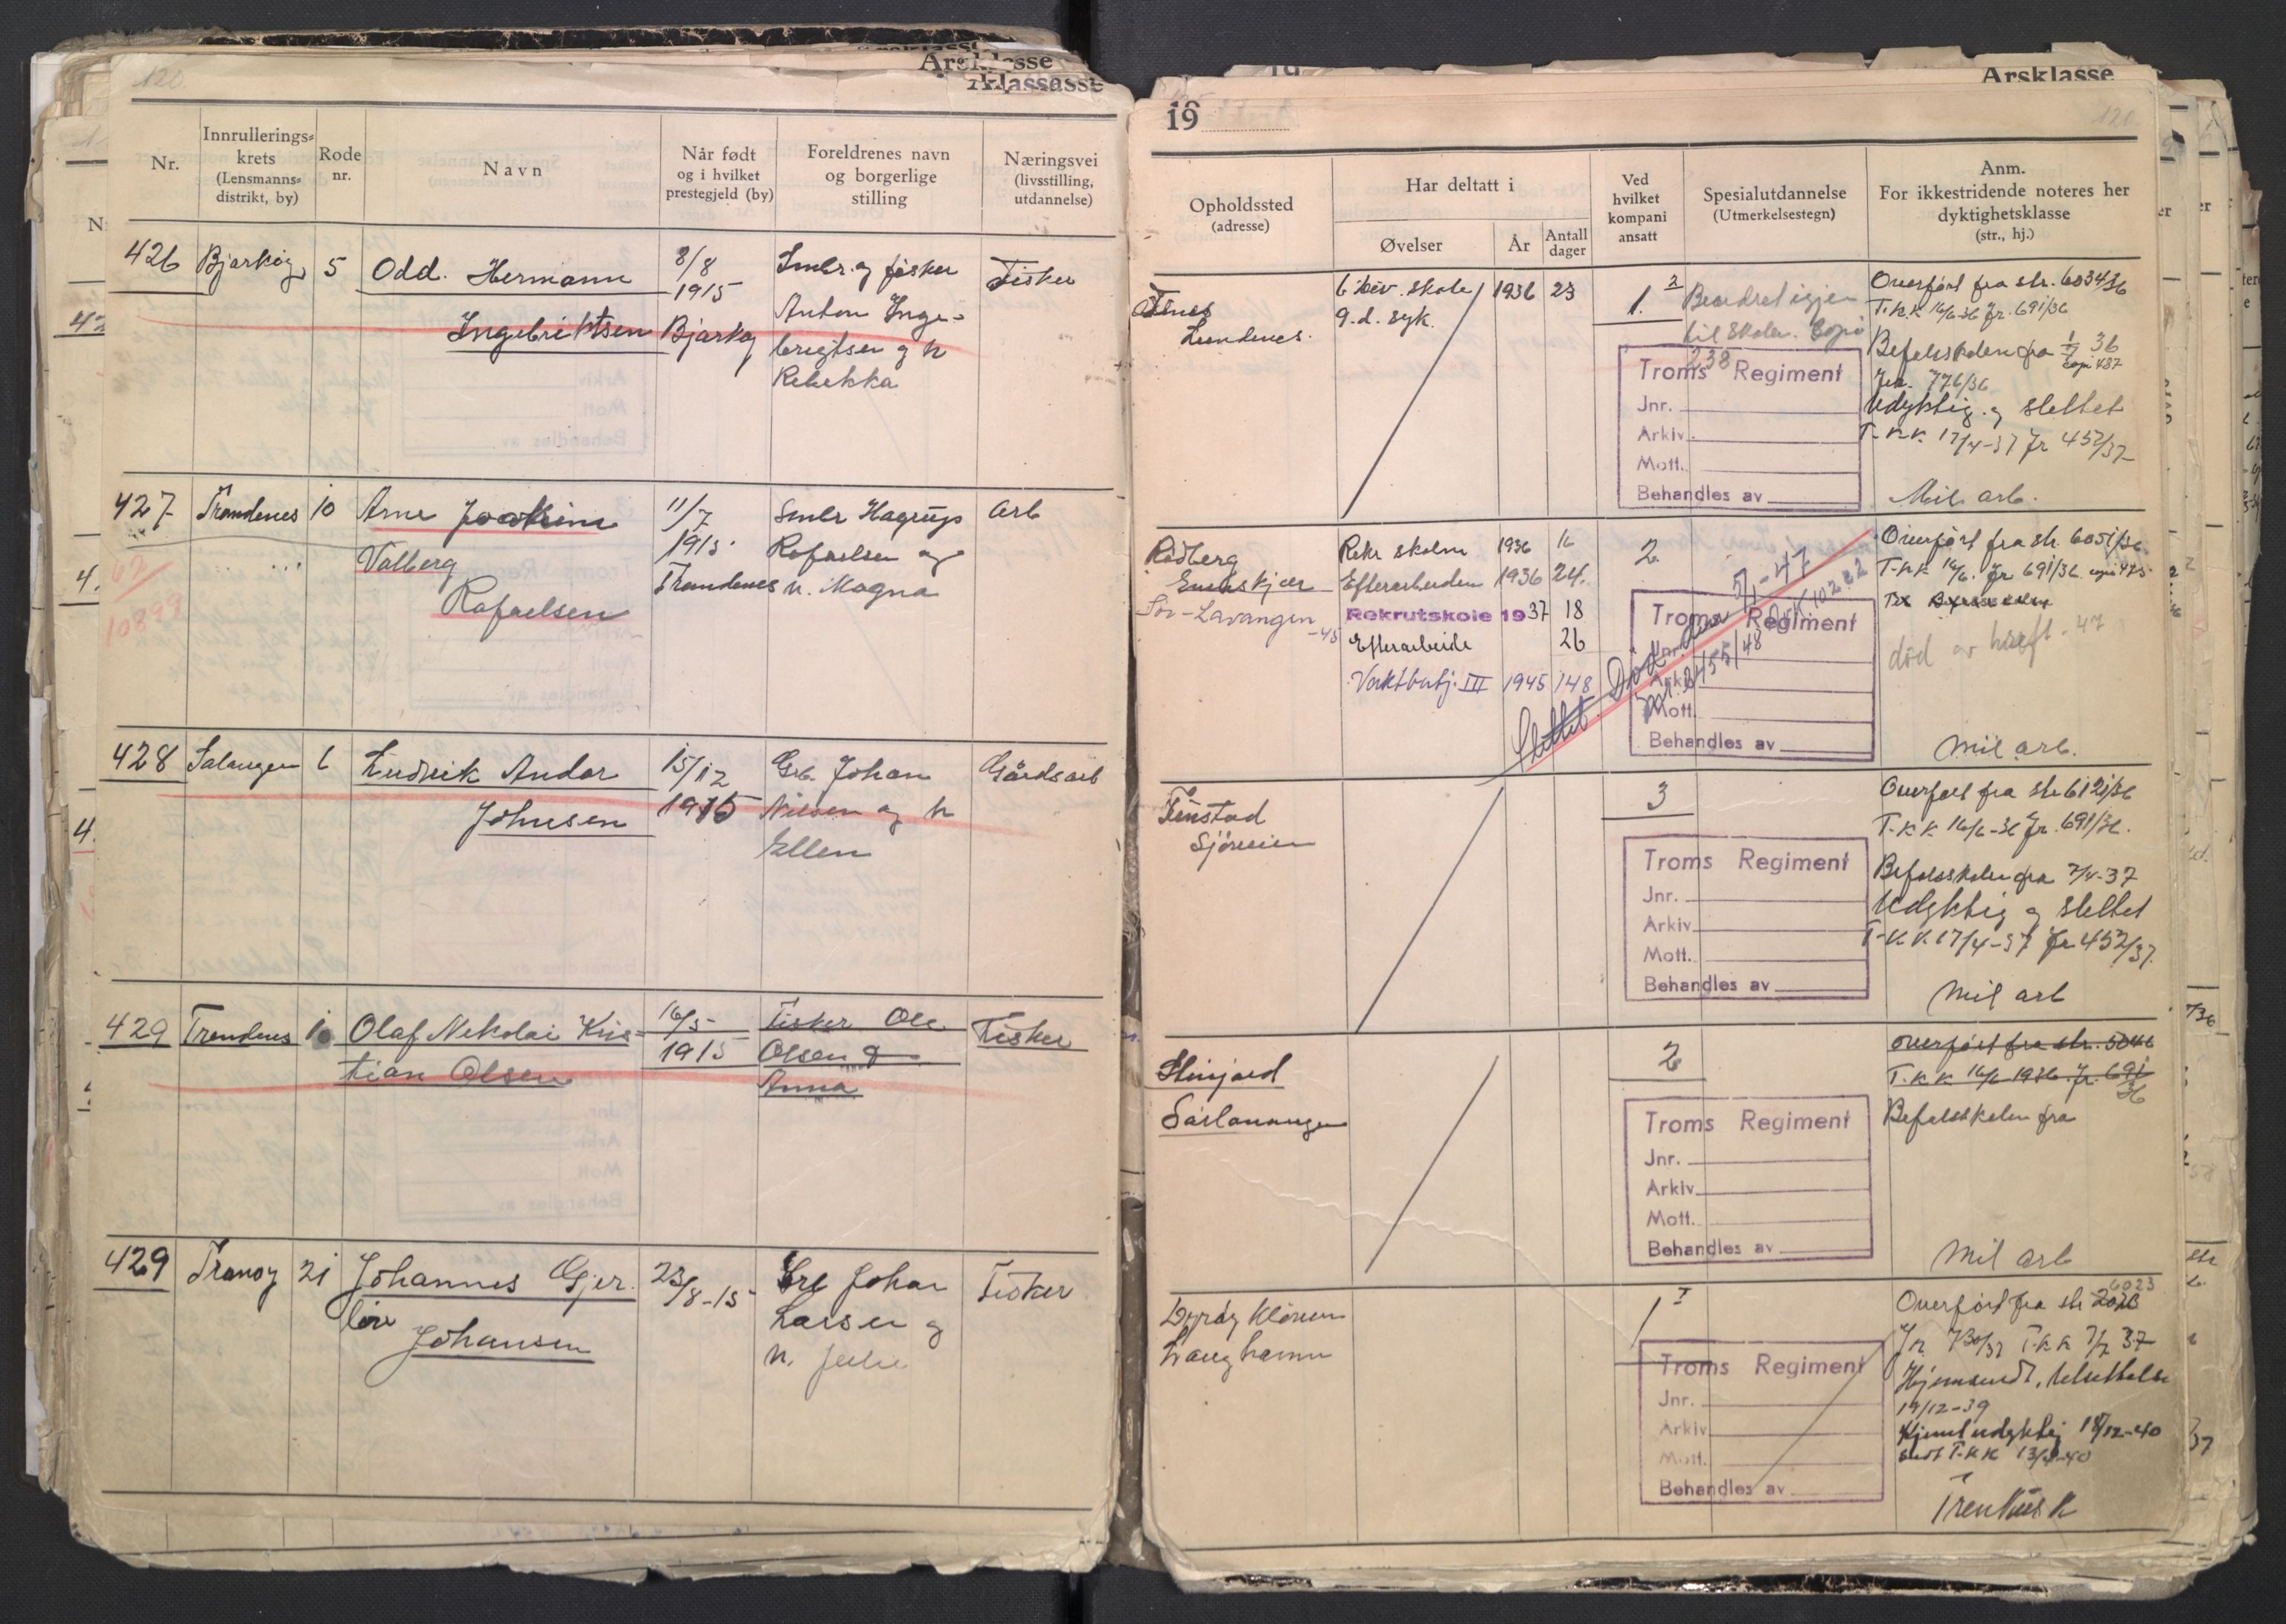 120.
Årsklasse
Nr.
Innrullerings=
krets
(Lensmanns=
distrikt, by)
Rode
nr.
Navn
Når født
og i hvilket
prestegjeld (by)
Foreldrenes navn
og borgerlige
stilling
Næringsvei
(livsstilling,
utdannelse)
426 Bjarkøy 5 Odd. Hermann
Ingebriktsen
8/8
1915
Bjarkøy
Smbr. og fisker
Anton Inge-
brigtsen og h
Rebekka
Fisker
427 Trondenes 10 Arne Joakim
Valberg
Rafaelsen
62
10899
11/7
1915
Trondenes
Smbr Hagrup
Rafaelsen og
h. Magna
Arb
428 Salangen 6 Ludvik Andor
Johnsen
15/12
1915
Grb. Johan
Nilsen og h
Ellen
Gårdsarb
429 Trondenes 10 Olaf Nikolai Kris=
tian Olsen
16/5
1915
Fisker Ole
Olsen og
Anna
Fisker
429 Tranøy 21 Johannes Gjer.
løv
Johansen
23/8-15
Johan
Larsen og
h. Julie
Fisker
Årsklasse
19
120
Opholdssted
(adresse)
Har deltatt i
Øvelser
År
Antall
dager
Ved
hvilket
kompani
ansatt
Spesialutdannelse
(Utmerkelsestegn)
Anm.
For ikkestridende noteres her
dyktighetsklasse
(str., hj.)
Lundenes.
skole 1936 23
g. d. syk.
1. 2
Beordret igjen
til skolen. Copi
238
Troms Regiment
Jnr.
Arkiv.
Mott.
Behandles av
Overført fra str. 6034/36
T.K.K. 16/6-36 Jr. 691/36
Befalsskolen fra 1/7 36
copi 487
Jnr. 776/36
Udyktig og slettet
T.K.K. 17/4-37 Jr 452/37
Mil arb.
Rødberg
Sør-Lavangen -45
Rekr skolen 1936 16
Efterarbeiden 1936 24.
Rekrutskole 1937 18
Efterarbeide 26
Vaktbatj. III 1945 148
2
Slettet. Død
5/1-47
Troms Regiment
Jnr.
Arkiv
Mott.
Behandles av
Overført fra str. 6051/36
T.K.K 16/6. Jr 691/36 copi 475
død av kreft - 47
Mil arb.
Finstad
Sjøveien
3
Troms Regiment
Jnr.
Arkiv
Mott.
Behandles av
Overført fra str 6121/36
T.K.K 16/6-36 Jr. 691/36.
Befalsskolen fra 7/4-37
Udyktig og slettet
T.K.K. 17/4-37 Jr 452/37.
Mil arb
Sørlavangen
2
Troms Regiment
Jnr.
Arkiv
Mott.
Behandles av
Overført fra str. 5046
T.K.K 16/6 1936 Jr. 691/36
Befalsskolen fra
Mil arb
Dyrøy Kløven
Langhamn
1 I
Troms Regiment
Jnr.
Arkiv
Mott.
Behandles av
6023
Overført fra str
Jr. 730/37 T.K.K 7/7 37
Hjemsendt, utsettelse
19/12-39
Kjent udyktig 18/12-40
sendt T.K.K 13/9-40